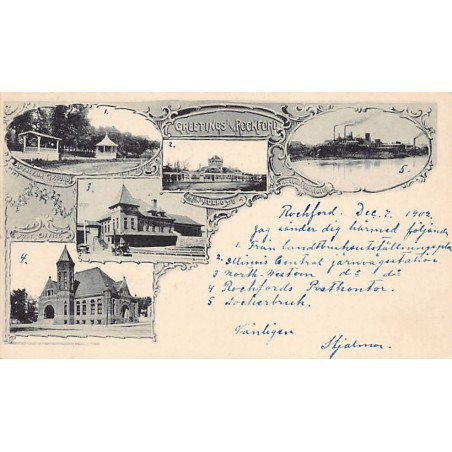 GREETINGS FROM ROCKFORD
1.
2.
DEPOTS
3.
POST OFFICE
4.
5.
Rockford. Dec. 7. 1902.
Jag sänder dig härmed följande
1. Från landtbruksutställningsplat
2. Illinois Central järnvägsstation
3 North-Western do do
4 Rockfords Postkontor.
5 Sockerbruk.
Vänligen
Hjalmar.